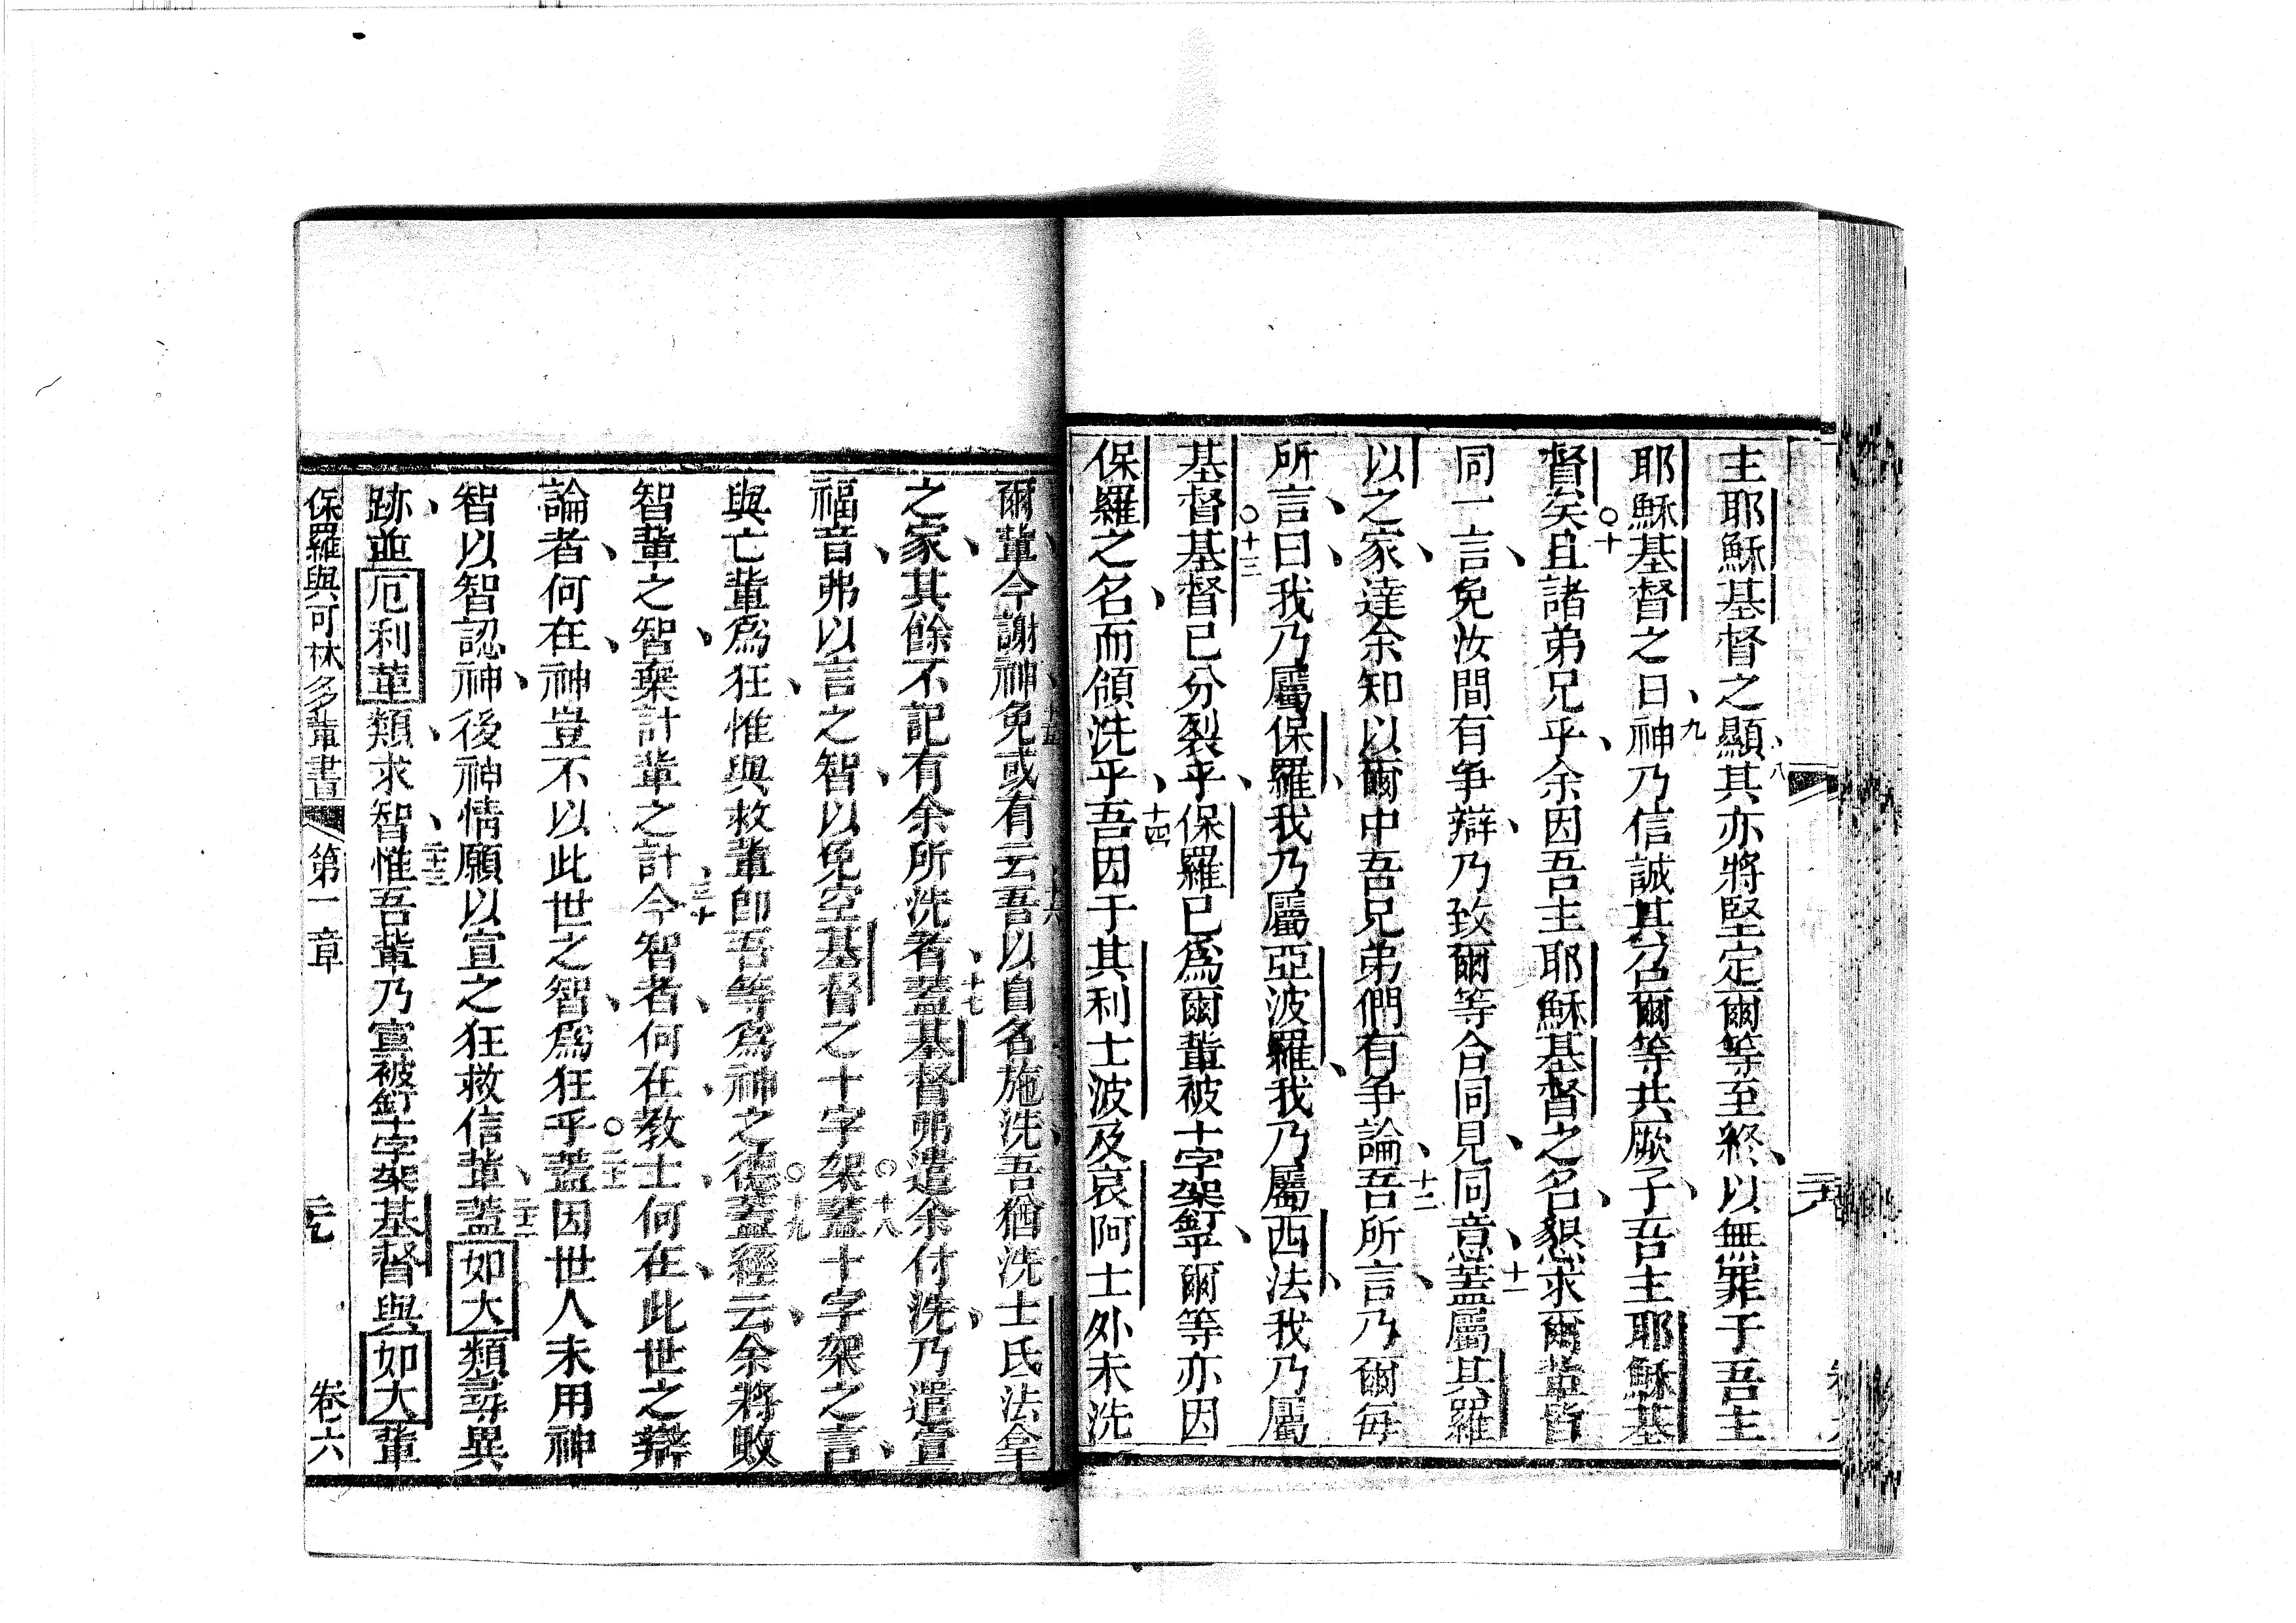 主耶穌基督之顯、八其亦將堅定爾等至終、以無罪于吾主
耶穌基督之日、九神乃信誠其召爾等共厥子、吾主耶穌基
督矣○十且諸弟兄乎、余因吾主耶穌基督之名、懇求爾輩皆
同一言、免汝間有争辯、乃致爾等合同見、同意、十一蓋屬其羅
以之家、達余知以爾中吾兄弟們有争論、十二吾所言、乃爾每
所言、曰、我乃屬保羅、我乃屬亞波羅、我乃屬西法、我乃屬
基督○十三基督已分裂乎、保羅已為爾輩被十字架釘乎、爾等亦因
保羅之名、而領洗乎、十四吾因于其利士波及哀阿士外未洗
爾輩、今謝神、十五免或有云、十六吾以自名施洗、吾猶洗士氏法拿
之家、其餘不記有余所洗者、十七蓋基督弗遣余付洗、乃遣宣
福音、弗以言之智、以免空基督之十字架○十八蓋十字架之言、
與亡輩為狂、惟與救輩即吾等為神之德○十九蓋經云、余將敗
智輩之智、棄計輩之計、二十今智者、何在、教士、何在、此世之辯
論者、何在、神豈不以此世之智、為狂乎○二十一蓋因世人未用神
智以智認神、後神情願以宣之狂救信輩、二十二蓋如大類尋異
跡、並厄利革類、求智、二十三惟吾輩乃宣被釘十字架基督與如大輩
保羅與可林多輩書 第一章 元 卷六